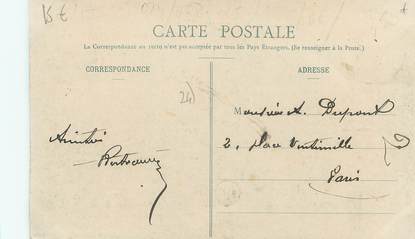 15 €
CARTE POSTALE
La Correspondance au recto n'est pas acceptée par tous les Pays Étrangers. (Se renseigner à la Poste.)
CORRESPONDANCE
ADRESSE
24)
Monsieur A. Dupont
2, place Vintimille
Paris
Amitiés